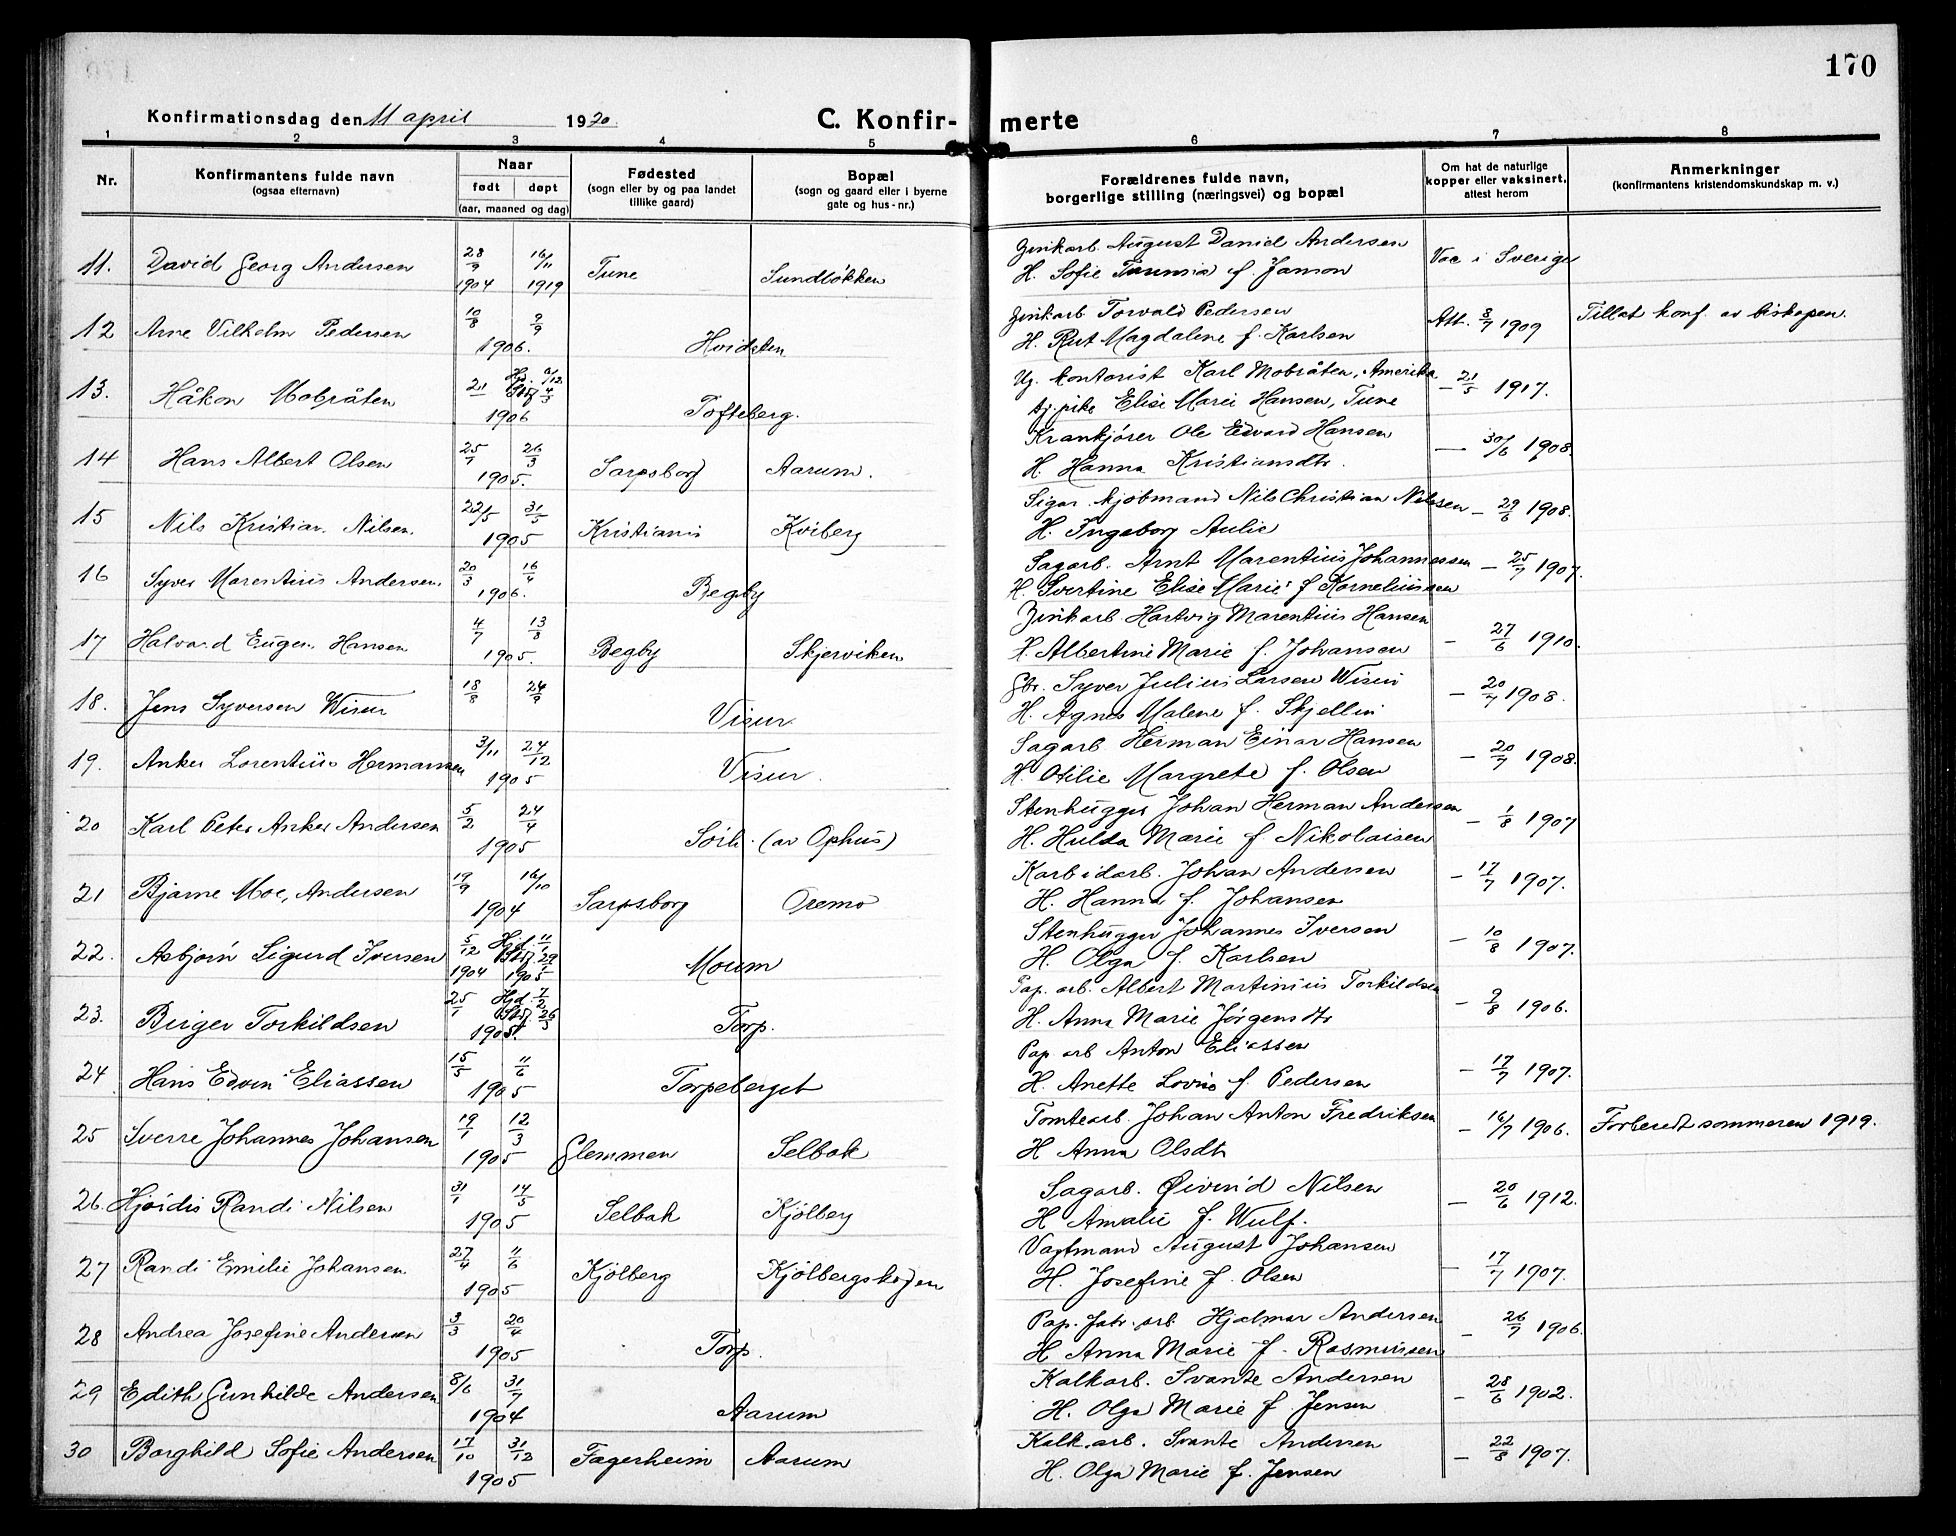 170
Konfirmationsdag den 11 april 1920
C. Konfirmerte
1 2 3 4 5 6 7 8
Nr.
Konfirmantens fulde navn
(ogsaa efternavn)
Naar
født døpt
(aar, maaned og dag)
Fødested
(sogn eller by og paa landet
tillike gaard)
Bopæl
(sogn og gaard eller i byerne
gate og hus-nr.)
Forældrenes fulde navn,
borgerlige stilling (næringsvei) og bopæl
Om hat de naturlige
kopper eller vaksinert,
attest herom
Anmerkninger
(konfirmantens kristendomskundskap m. v.)
11. David Georg Andersen 28/9 1904 16/11 1919 Tune Sundløkken
Zinkarb. August Daniel Andersen
H. Sofie f. Janson
Vac i Sverige
12 Arne Vilhelm Pedersen 10/8 2/9 1906. Hvidsten
Zinkarb Torvald Pedersen
H. Rut Magdalene f. Karlsen
Att. 8/7 1909
Tillat konf. av biskopen.
13. Håkon Mobråten 1906 Tofteberg.
Ug. kontorist Karl Mobråten, Amerika
tj. pike Elise Marie Hansen, Tune
— 21/5 1917.
14 Hans Albert Olsen 25/1 26/3 1905. Sarpsborg Aarum.
Krankjører Ole Edvard Hansen
H. Hanna Kristiansdtr.
— 30/6 1908.
15 Nils Kristian Nilsen. 22/5 31/5 1905 Kristiania Kviberg
Sigar kjøbmand Nils Christian Nilssen
H. Ingeborg Aulie
— 29/6 1908.
16 Syver Marentius Andersen. 20/3 16/4 1906. Begby
Sagarb. Arnt Marentius Johannessen
H. Svertine Elise Marie f Korneliussen
— 25/7 1907.
17 Halvard Eugen Hansen 4/7 13/8 1905. Begby Skjerviken
Zinkarb Hartvig Marentius Hansen
H Albertine Marie f. Johansen
— 27/6 1910.
18. Jens Syversen Wisur 18/8 24/9 Visur
Gbr. Syver Julius Larsen Wisur
H. Agnes Malene f. Skjellin
— 20/7 1908.
19. Anker Lorentius Hermansen 3/11 24/12 1905 Visur.
Sagarb Herman Einar Hansen
H. Otilie Margrete f. Olsen
— 20/7 1908.
20 Karl Peter Anker Andersen 5/2 24/4 1905 Sörli (av Ophus)
Stenhugger Johan Herman Andersen
H. Hulda Marie f Nikolaisen
— 1/8 1907
21 Bjarne Moe, Andersen 19/9 16/10 1904 Sarpsborg Oremo
Karbidarb. Johan Andersen
H. Hanna f. Johansen
— 17/7 1907.
22. Asbjørn Sigurd Iversen 5/12 1904 Hjd. 11/1 1905 Moum
Stenhugger Johannes Iversen
H. Olga f. Karlsen
— 10/8 1907.
23. Birger Torkildsen 25/1 Hjd. 7/2 1905. Torp.
Pap. arb. Albert Martinius Torkildsen
H. Anna Marie Jørgensdtr
— 9/8 1906.
24 Hans Edvin Eliassen 15/5 11/6 1905 Torpeberget
Pap arb Anton Eliassen
H. Anette Lovise f. Pedersen
— 17/7 1907.
25 Sverre Johannes Johansen 19/1 12/3 1905 Glemmen Selbak
Tomtearb. Johan Anton Fredriksen
H Anna Olsdtr
— 16/7 1906.
Forberedt sommeren 1919.
26. Hjørdis Randi Nilsen 31/1 14/5 1905 Selbak Kjölberg
Sagarb. Øivind Nilsen
H Amalie f. Wulf.
— 20/6 1912.
27 Randi Emilie Johansen 27/4 11/6 1905 Kjölberg Kjölbergskogen
Vagtmand August Johansen
H. Josefine f. Olsen
— 17/7 1907.
28 Andrea Josefine Andersen 3/3 20/4 1905 Torp.
Pap. fabr. arb Hjalmar Andersen
H Anna Marie f. Rasmussen
— 26/7 1906.
29 Edith Gunhilde Andersen 8/6 31/7 1904 Aarum
Kalkarb. Svante Andersen
H. Olga Marie f Jensen
— 28/6 1902.
30 Borghild Sofie Andersen 17/10 31/12 1905 Fagerheim Aarum
Kalk.arb. Svante Andersen
H. Olga Marie f. Jensen
— 22/8 1907.